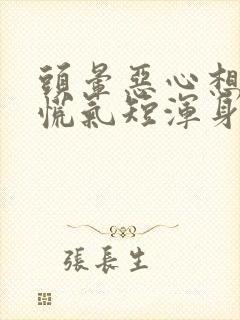 頭暈惡心想
慌氣短渾身
張長生